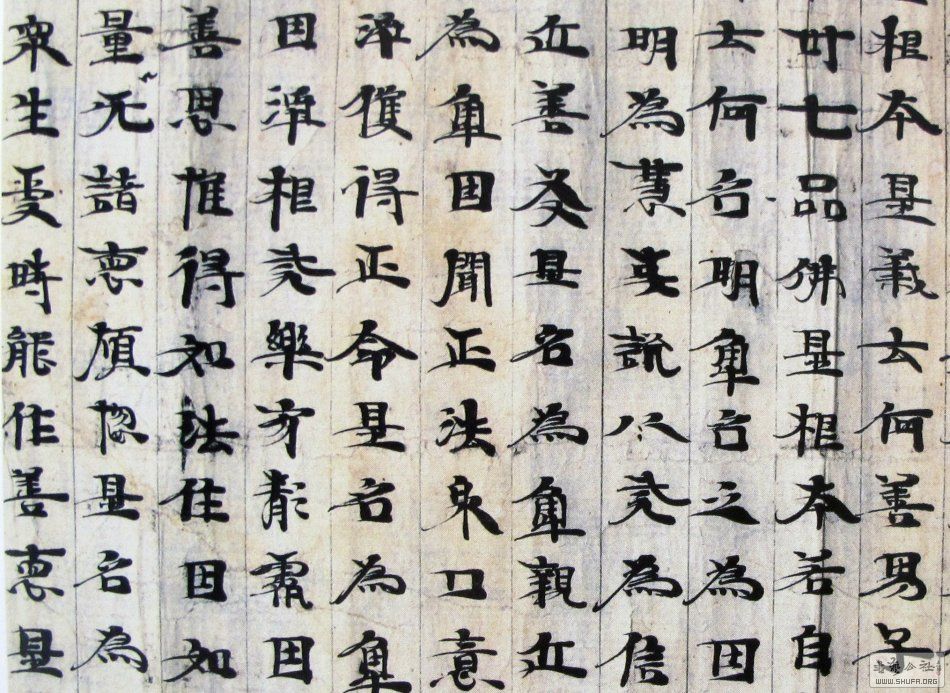 根本是義云何善男子
卅七品佛是根本若自
云何名明觸名之為因
明為慧說八為信
近善友是名為觸親近
為觸因聞正法身口意
淨獲得正命是名為觸
因淨根戒樂寂靜處因
善思惟得如法住因如
量无諸惡煩惱是名為
眾生受時能作善惡是
WWW.SHUFA.ORG